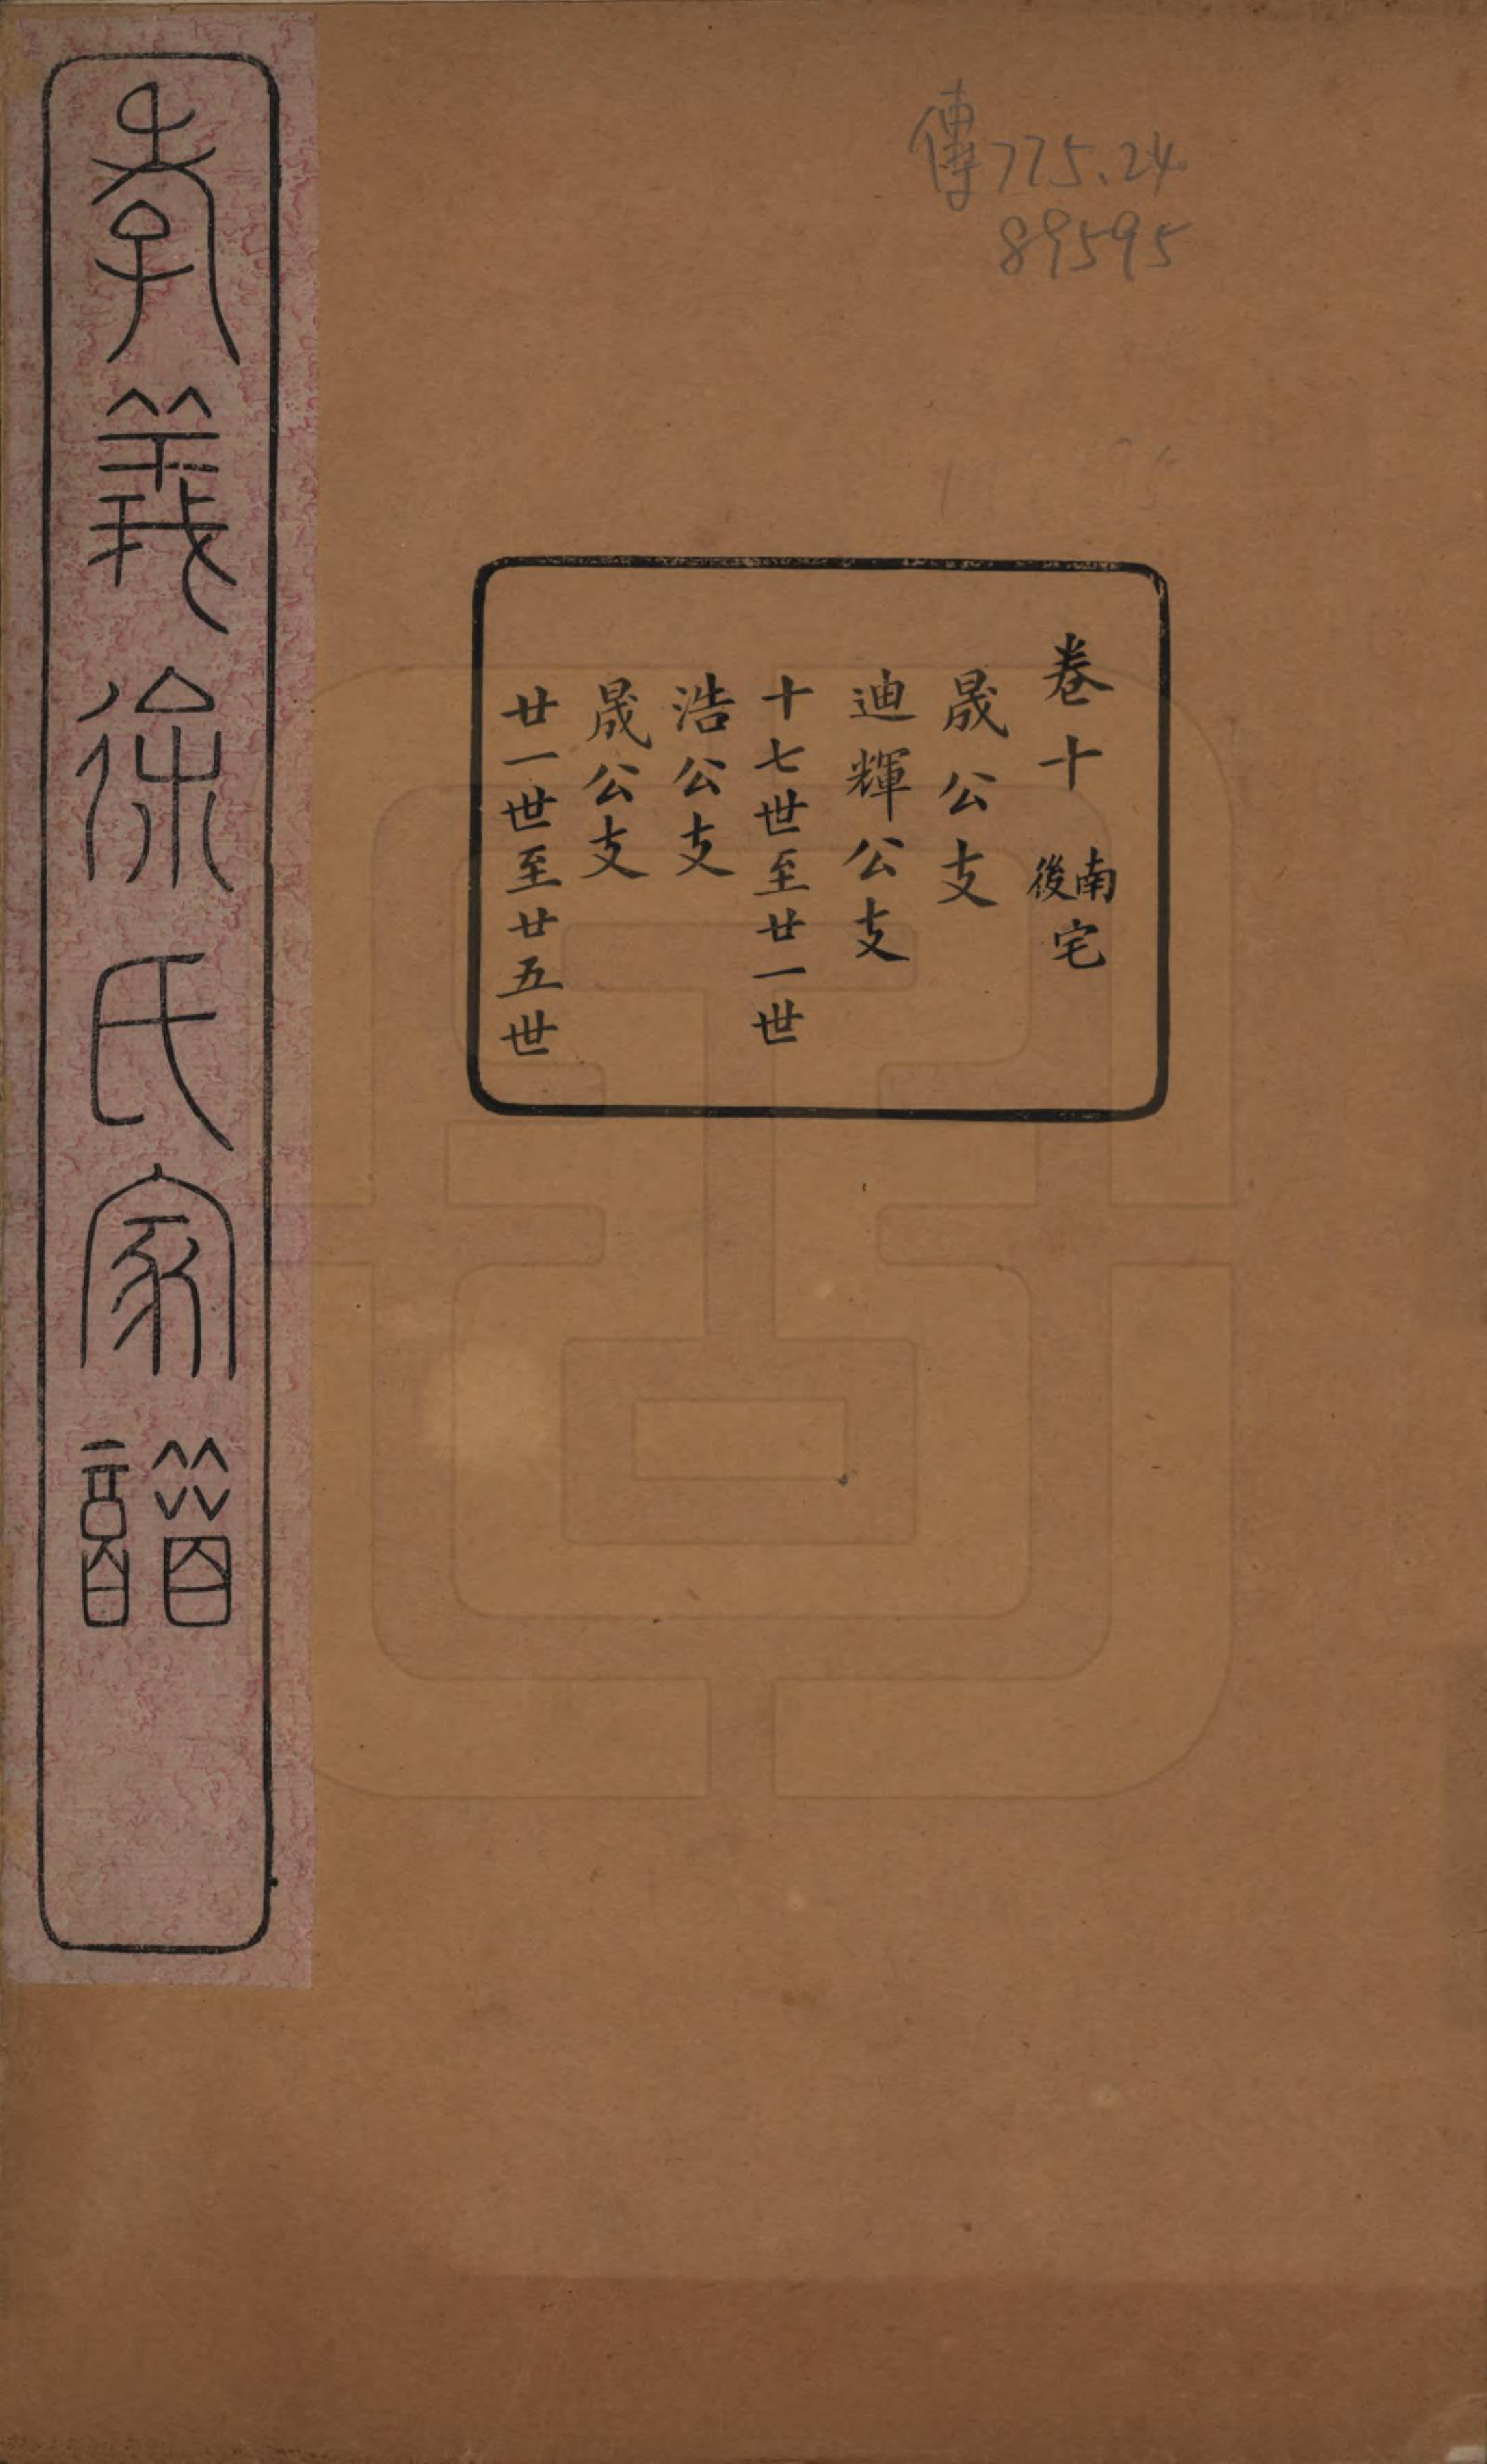 傳775.24
89595
卷十 南後宅
晟公支
迪輝公支
十七世至廿一世
浩公支
晟公支
廿一世至廿五世
孝義徐氏家譜